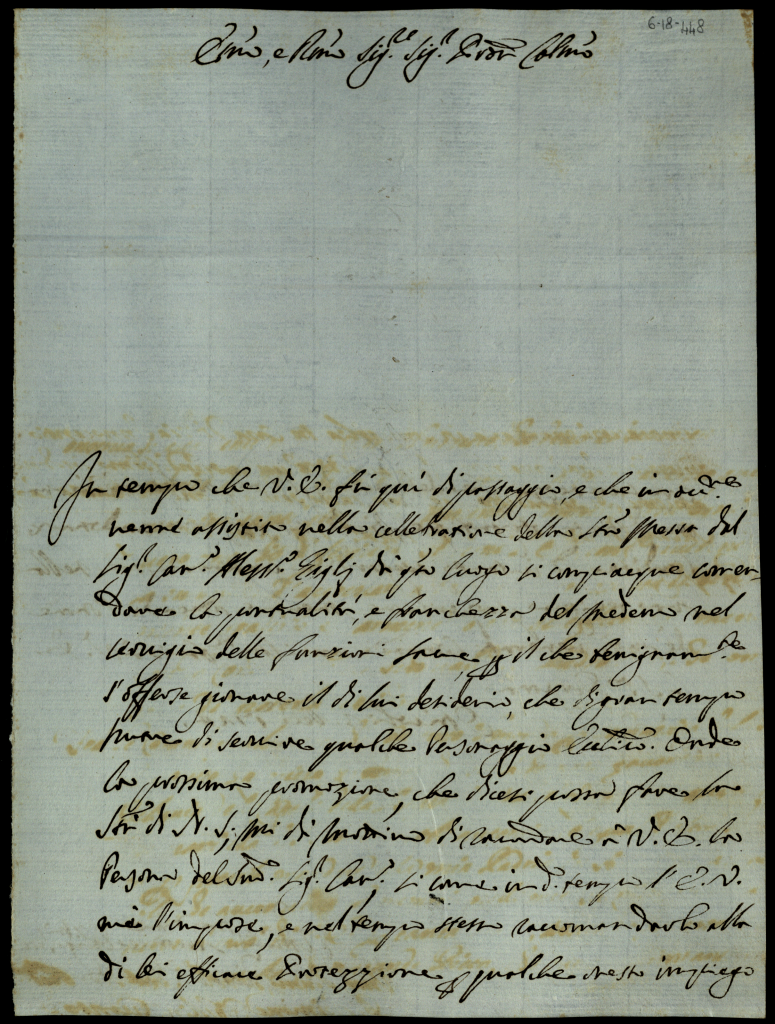 6-18-448
Em̃o, e Rm̃o Sig.re Sig.r Pr̃on Col̃mo
In tempo che V. E. fù quì di passaggio, e che in occ.ne
venne assistita nella cellebratione della Stã Messa dal
Sig.r Can.co Aless.o Giglj di q̃to luogo si compiacque comen-
dare la pontualità, e franchezza del medemo nel
servigio delle funzioni sacre, per il che benignam.te
s'offerse giovare il di lui desiderio, che di gran tempo
nutre di servire qualche Personaggio Eccl̃ico. Onde
la prossima promozione, che dicesi possa fare la
Stã di N. S., mi dà motivo di ricordare à V. E. la
Persona del Sud.o Sig.r Can.co, si come in d.o tempo l'E. V.
mè l'impose, e nel tempo stesso raccomandarlo alla
di lei efficace Protezzione per qualche onesto impiego